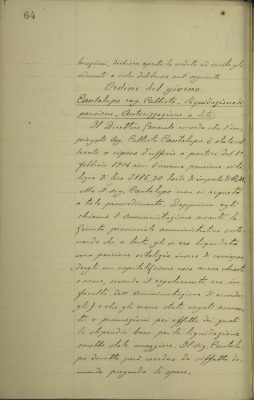 64
brazioni, dichiara aperta la seduta ed invita gli
adunati a voler deliberare sul seguente
Ordine del giorno:
Cantalupo rag. Callisto - Liquidazione di
pensione - Autorizzazione a lite.
Il Direttore Generale ricorda che l'im=
piegato Rag. Callisto Cantalupo è stato col=
locato a riposo d'ufficio a partire dal 1°
febbraio 1916 con l'annua pensione vita=
lizia di lire
Ma il sig. Cantalupo non si acquetò
a tale provvedimento. Dapprima egli
chiamò l'Amministrazione avanti la
Giunta provinciale amministrativa soste=
nendo che a torto gli si era liquidata
una pensione vitalizia invece di corrispon=
dergli un capitale (come esso aveva chiesto
e come, secondo il regolamento, era in
facoltà dell'Amministrazione di accordar=
gli) e che gli erano stati negati aumen=
ti e promozioni per effetto dei quali
lo stipendio base per la liquidazione
sarebbe stato maggiore. Il sig. Cantalu=
po dovette però recedere da siffatta do=
manda pagando le spese.